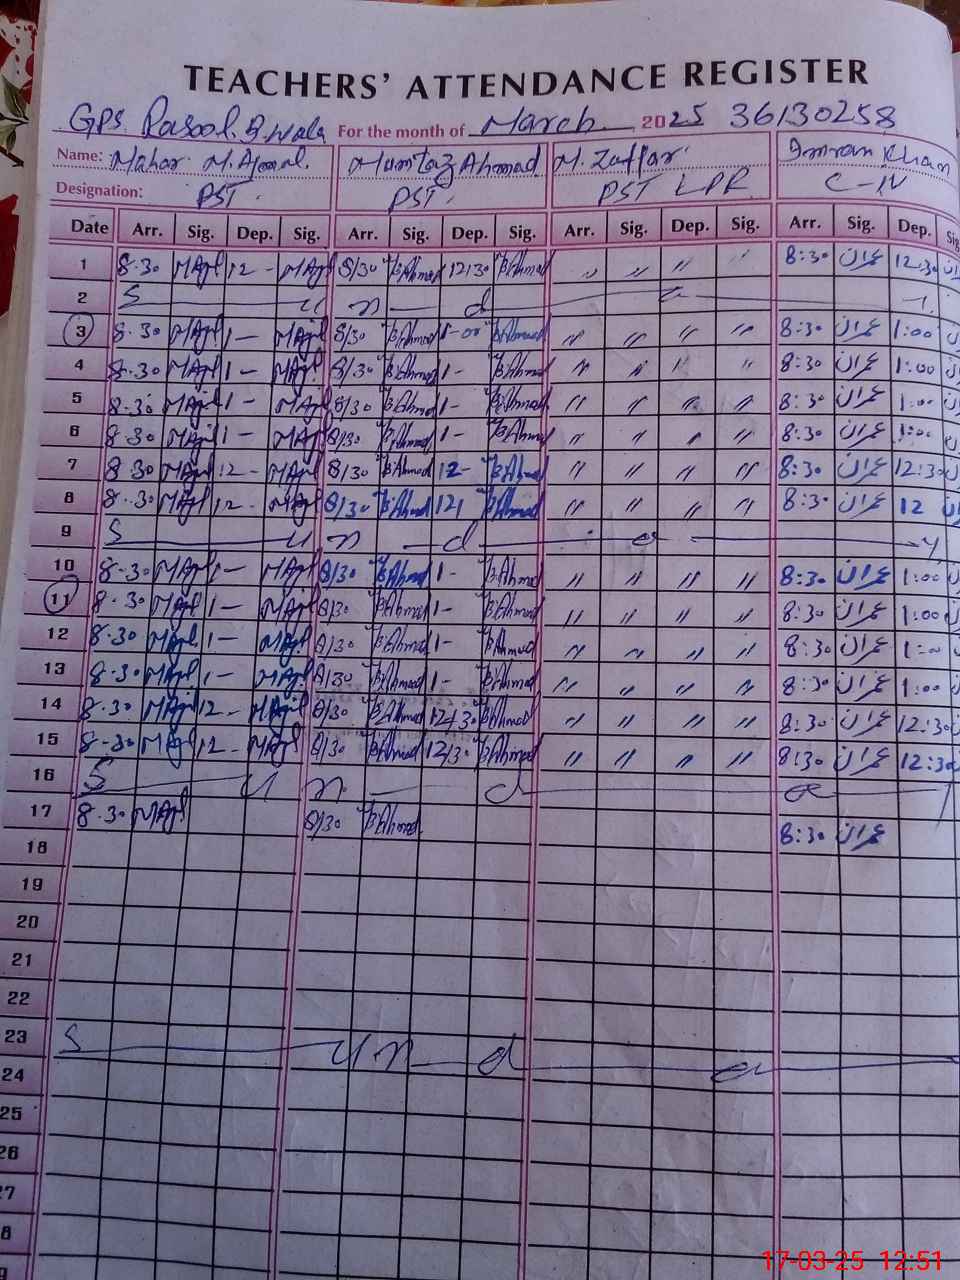 TEACHERS' ATTENDANCE REGISTER
GPS. Rasool. B. Wala For the month of March 2025 36130258
Name: Mahar M. Ajmal. Mumtaz Ahmad M. Zaffar Imran Khan
Designation: PST. PST. PST LPR C-IV
Date Arr. Sig. Dep. Sig. Arr. Sig. Dep. Sig. Arr. Sig. Dep. Sig. Arr. Sig. Dep. Sig
1 8.30 MAjl 12 - MAjl 8/30 Ahmad 12/30 Ahmad 〃 〃 〃 〃 8:30 عمران 12:30
2 S u n d a y
3 8.30 MAjl 1 - MAjl 8/30 Ahmad 1-00 Ahmad 〃 〃 〃 〃 8:30 عمران 1:00
4 8.30 MAjl 1 - MAjl 8/30 Ahmad 1- Ahmad 〃 〃 〃 〃 8:30 عمران 1:00
5 8.30 MAjl 1 - MAjl 8/30 Ahmad 1- Ahmad 〃 〃 〃 〃 8:30 عمران 1:00
6 8.30 MAjl 1 - MAjl 8/30 Ahmad 1- Ahmad 〃 〃 〃 〃 8:30 عمران 1:00
7 8.30 MAjl 12 - MAjl 8/30 Ahmad 12- Ahmad 〃 〃 〃 〃 8:30 عمران 12:30
8 8.30 MAjl 12 - MAjl 8/30 Ahmad 12 Ahmad 〃 〃 〃 〃 8:30 عمران 12
9 S u n d a y
10 8.30 MAjl 1 - MAjl 8/30 Ahmad 1- Ahmad 〃 〃 〃 〃 8:30 عمران 1:00
11 8.30 MAjl 1 - MAjl 8/30 Ahmad 1- Ahmad 〃 〃 〃 〃 8:30 عمران 1:00
12 8.30 MAjl 1 - MAjl 8/30 Ahmad 1- Ahmad 〃 〃 〃 〃 8:30 عمران 1:00
13 8.30 MAjl 1 - MAjl 8/30 Ahmad 1- Ahmad 〃 〃 〃 〃 8:30 عمران 1:00
14 8.30 MAjl 12 - MAjl 8/30 Ahmad 12/30 Ahmad 〃 〃 〃 〃 8:30 عمران 12:30
15 8.30 MAjl 12 - MAjl 8/30 Ahmad 12/30 Ahmad 〃 〃 〃 〃 8:30 عمران 12:30
16 S u n d a y
17 8.30 MAjl 8/30 Ahmad 8:30 عمران
18
19
20
21
22
23 S u n d a
24
25
26
27
8
17-03-25 12:51